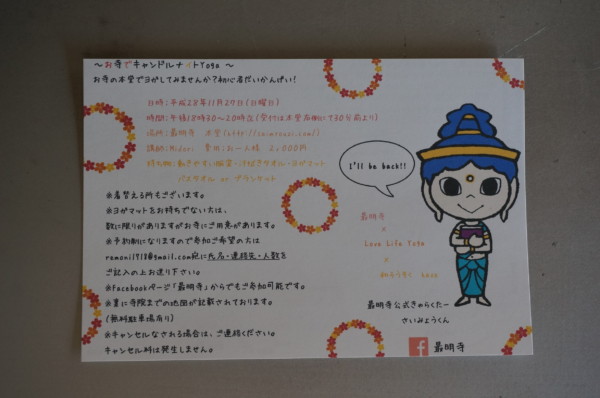 ～お寺でキャンドルナイトYoga ～
お寺の本堂でヨガしてみませんか？初心者だいかんげい！
日時：平成28年11月27日（日曜日）
時間：午後18時30～20時位（受付は本堂右側にて30分前より）
場所：最明寺 本堂
講師：Midori 費用：お一人様 2,000円
持ち物：動きやすい服装・汗拭きタオル・ヨガマット
バスタオル or ブランケット
※着替える所もございます。
※ヨガマットをお持ちでない方は、
数に限りがありますがお寺にご用意があります。
※予約制になりますので参加ご希望の方は
ramani1918@gmail.com宛に氏名・連絡先・人数を
ご記入の上お送り下さい。
※Facebookページ「最明寺」からでもご参加可能です。
※裏に寺院までの地図が記載されております。
（無料駐車場有り）
※キャンセルなされる場合は、ご連絡ください。
キャンセル料は発生しません。
I'll be back!!
最明寺
×
Love Life Yoga
×
最明寺公式きゃらくたー
さいみょうくん
f 最明寺